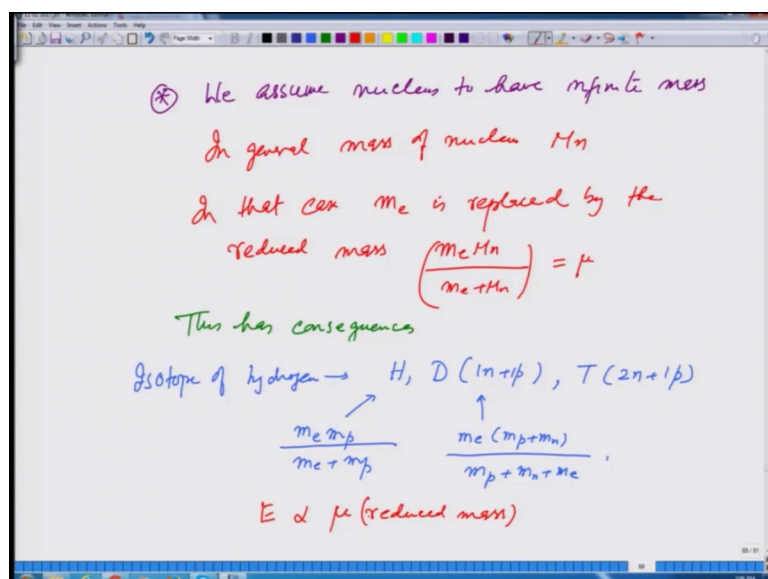 Edit View Insert Actions Tools Help
Page Width
* We assume nucleus to have infinite mass
In general mass of nucleus Mn
In that case me is replaced by the
reduced mass (me Mn / me + Mn) = μ
This has consequences
Isotope of hydrogen → H, D (1n+1p), T (2n+1p)
me mp / me + mp
me (mp + mn) / mp + mn + me
E α μ (reduced mass)